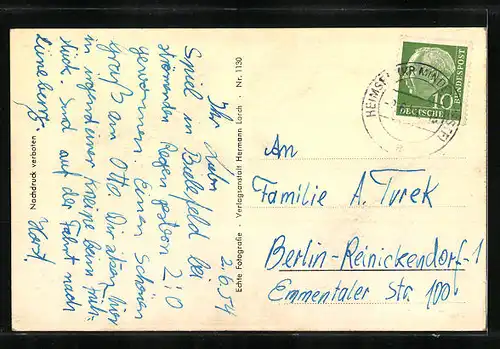 2.6.54
Ihr Lieben
Spiel in Bielefeld bei
strömenden Regen gestern 2:0
gewonnen. Einen schönen
gruß an Otto. Wir sitzen hier
in irgendeiner Kneipe beim Früh-
stück. Sind auf der Fahrt nach
Lüneburg.
Horst
Nachdruck verboten
Echte Fotografie - Verlagsanstalt Hermann Lorch - Nr. 1130
HEIMSEN
DEUTSCHE
BUNDESPOST
10
An
Familie A. Turek
Berlin-Reinickendorf-1
Emmentaler Str. 100